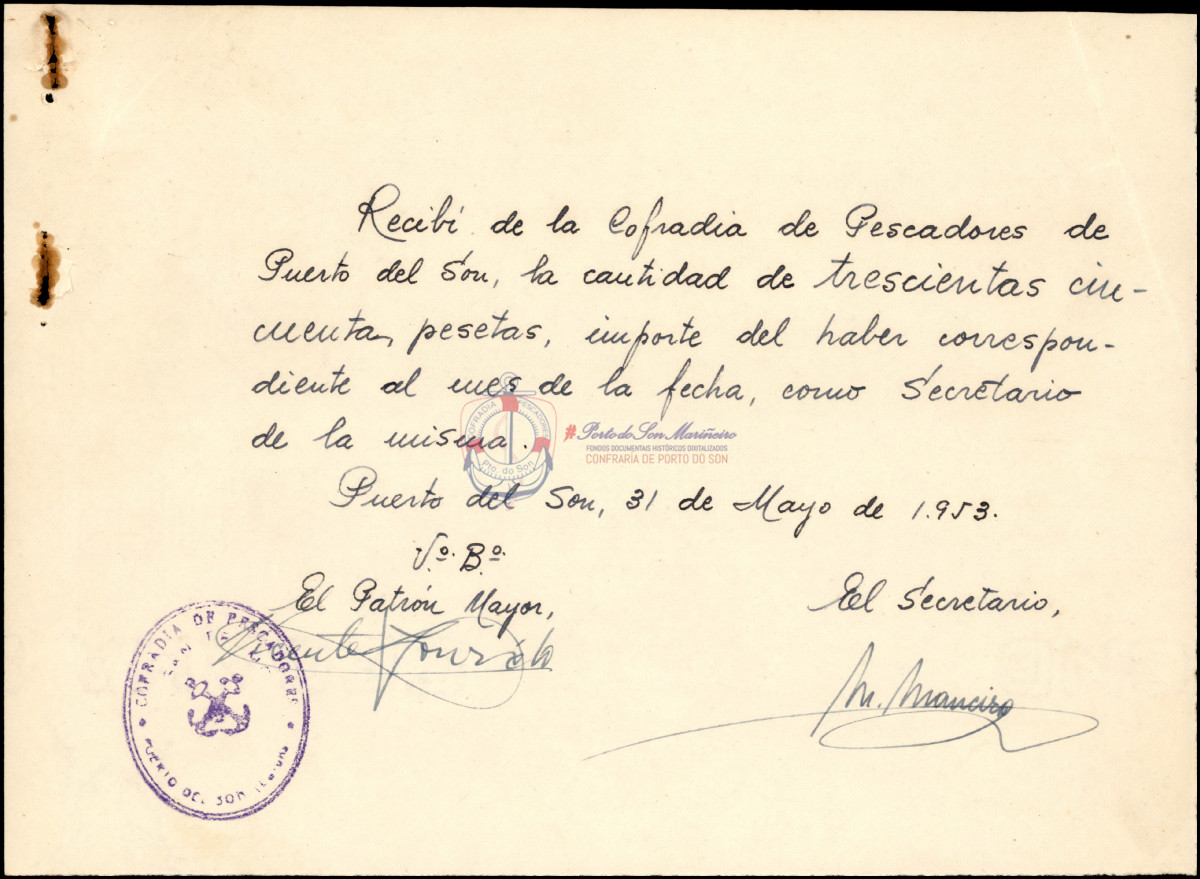 Recibí de la Cofradia de Pescadores de
Puerto del Son, la cantidad de trescientas cin-
cuenta pesetas, importe del haber correspon-
diente al mes de la fecha, como Secretario
de la misma.
COFRADIA PESCADORES
Pto. do Son
#Porto do Son Mariñeiro
FONDOS DOCUMENTAIS HISTÓRICOS DIXITALIZADOS
CONFRARÍA DE PORTO DO SON
Puerto del Son, 31 de Mayo de 1.953.
Vº. Bº.
El Patrón Mayor,
El Secretario,
Vicente
M. Maneiro
COFRADIA DE PESCADORES
PUERTO DEL SON